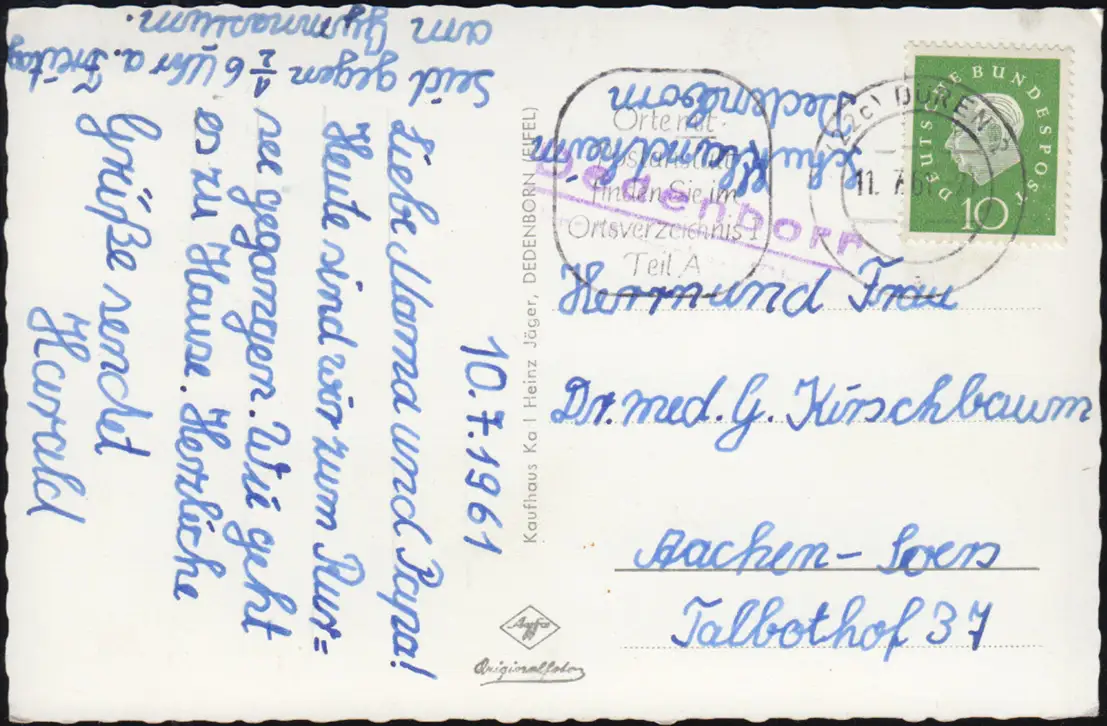 10.7.1961
Liebe Mama und Papa!
Heute sind wir zum Rur=
see gegangen. Wie geht
es zu Hause. Herzliche
Grüße sendet
Harald
Seid gegen ½ 6 Uhr a. Freitag
am Gymnasium.
Kaufhaus Ka l Heinz Jäger, DEDENBORN (EIFEL)
Agfa
Originalfoto
Schullandheim
Dedenborn
Orte mit
finden Sie im
Ortsverzeichnis I
Teil A
Dedenborn
(22c) DÜREN
11. 7. 61
DEUTSCHE BUNDESPOST
10
Herrn und Frau
Dr. med. G. Kirschbaum
Aachen - Soers
Talbothof 37